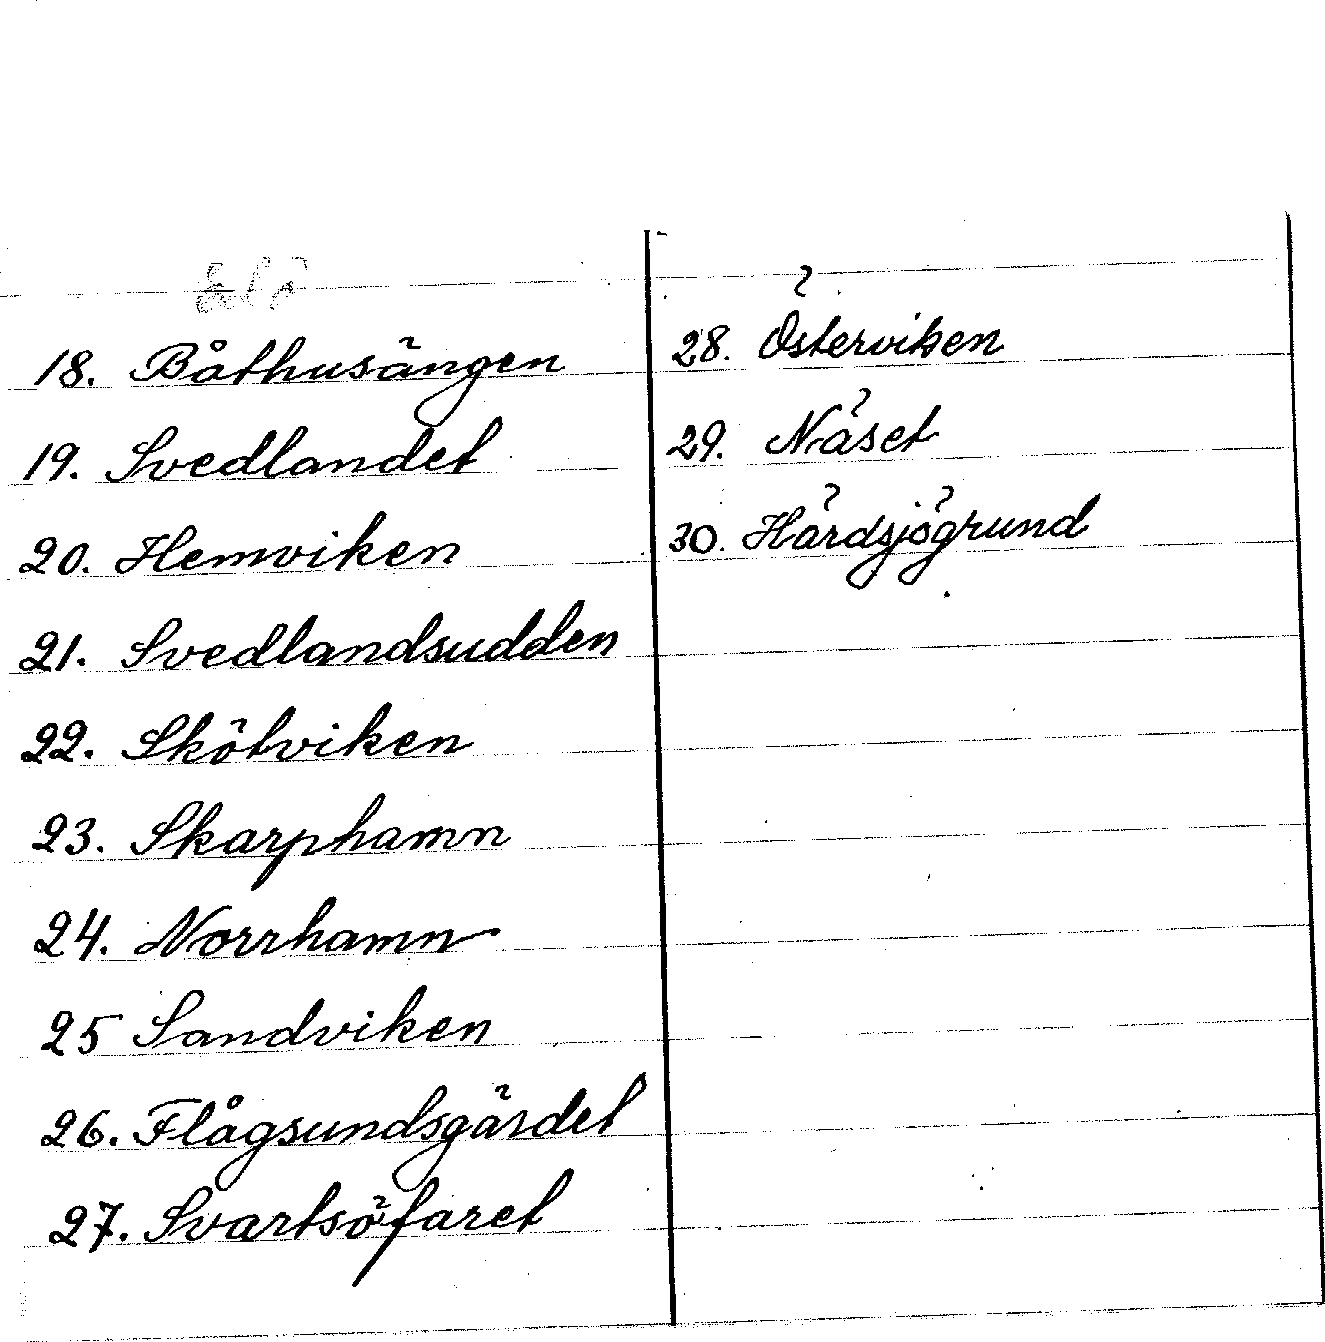 18. Båthusängen
19. Svedlandet
20. Hemviken
21. Svedlandsudden
22. Skötviken
23. Skarphamn
24. Norrhamn
25 Sandviken
26. Flågsundsgärdet
27. Svartsöfaret
28. Österviken
29. Näset
30. Härdsjögrund